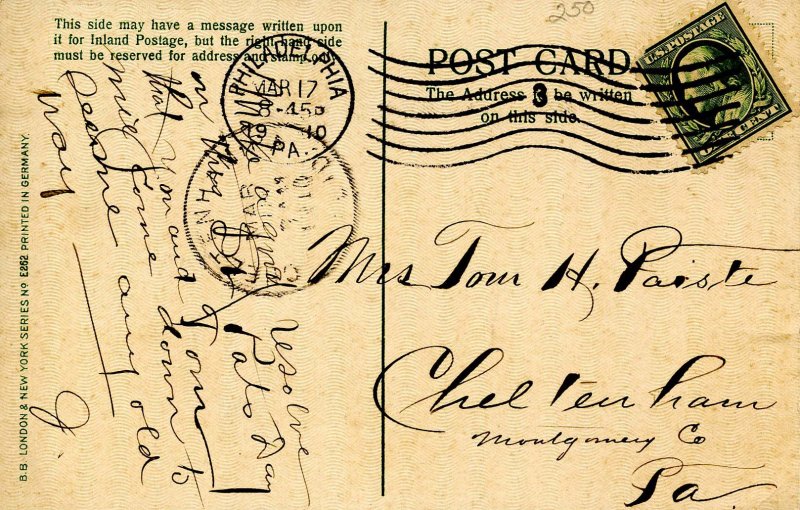 250
This side may have a message written upon
it for Inland Postage, but the right hand side
must be reserved for address and stamp only.
PHILADELPHIA
MAR 17
8-45P
1910
PA.
POST CARD
The Address to be written
on this side.
3
U.S. POSTAGE
ONE CENT
Make a good resolve
on this St Pats Day
that you and Tom
will come down to
see me any old
way
J.
Mrs Tom H. Paiste
Cheltenham
Montgomery Co
Pa.
B.B. LONDON & NEW YORK SERIES No E252 PRINTED IN GERMANY.